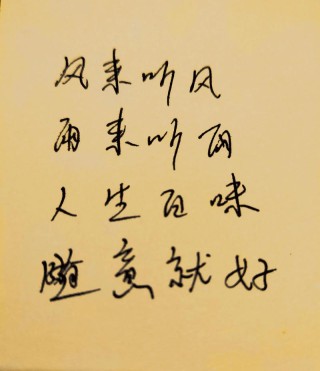 风来听风
雨来听雨
人生百味
随意就好